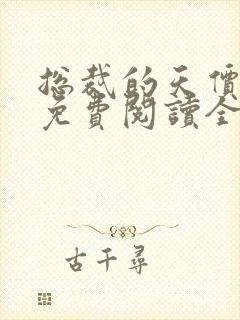 总裁的天價
免費閱讀全
古千尋